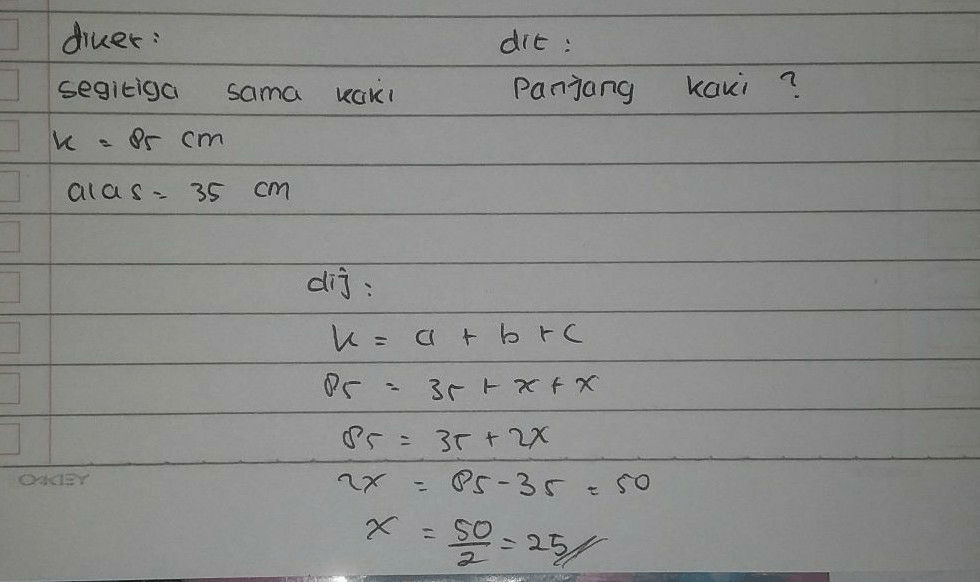 diket: dit:
segitiga sama kaki Panjang kaki ?
k = 85 cm
alas = 35 cm
dij:
k = a + b + c
85 = 35 + x + x
85 = 35 + 2x
2x = 85 - 35 = 50
x = 50/2 = 25//
OAKLEY